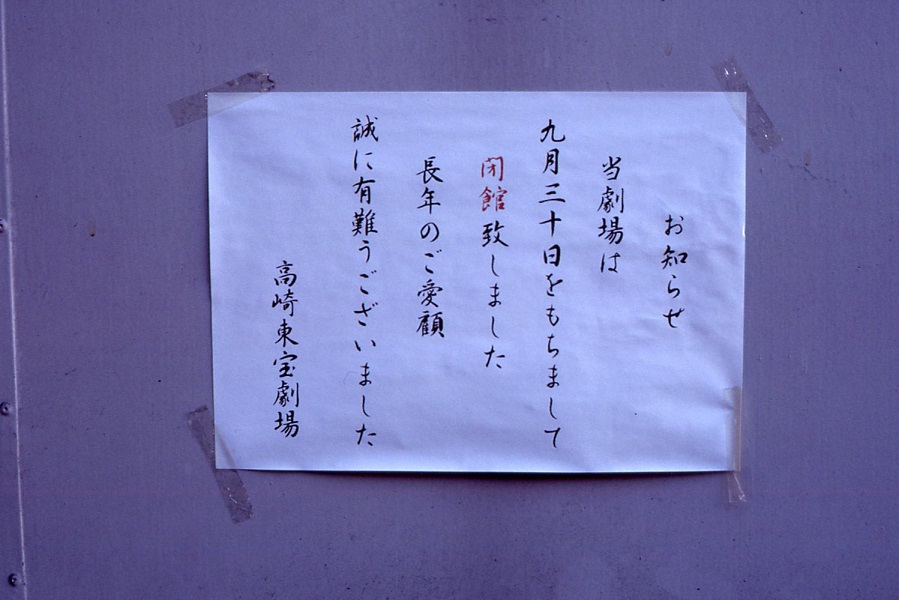 お知らせ
当劇場は
九月三十日をもちまして
閉館致しました
長年のご愛顧
誠に有難うございました
高崎東宝劇場